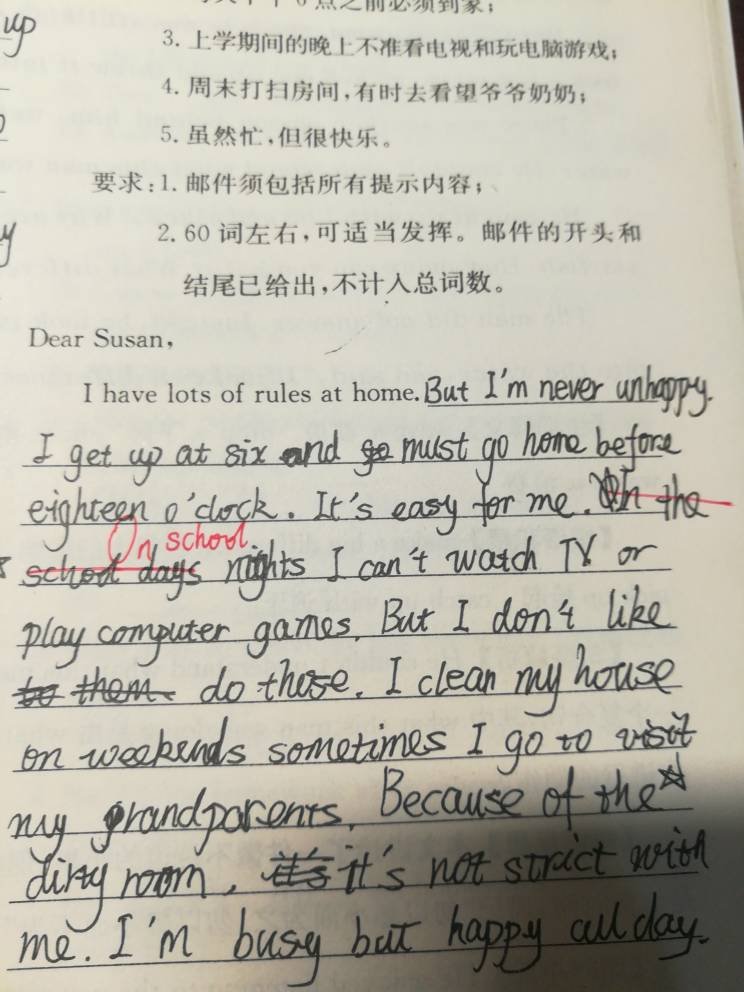 up
点之前必须到家；
3. 上学期间的晚上不准看电视和玩电脑游戏；
4. 周末打扫房间，有时去看望爷爷奶奶；
5. 虽然忙，但很快乐。
要求：1. 邮件须包括所有提示内容；
2. 60 词左右，可适当发挥。邮件的开头和
结尾已给出，不计入总词数。
Dear Susan,
I have lots of rules at home. But I'm never unhappy.
I get up at six and go must go home before
eighteen o'clock. It's easy for me. On the
On school
school days nights I can't watch TV or
play computer games. But I don't like
to them do these. I clean my house
on weekends sometimes I go to visit
my grandparents. Because of the
dirty room, it's it's not strict with
me. I'm busy but happy all day.